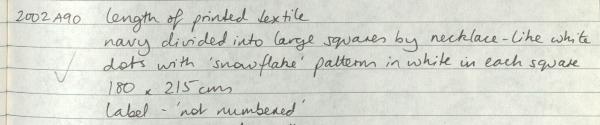 2002A90 length of printed textile
navy divided into large squares by necklace-like white
dots with 'snowflake' pattern in white in each square
180 x 215 cms
label - 'not numbered'